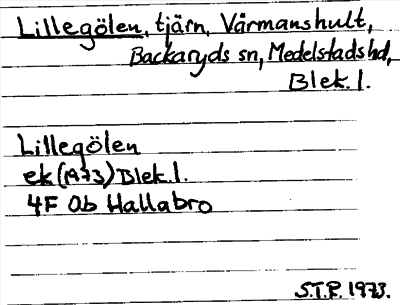 Lillegölen, tjärn, Värmanshult,
Backaryds sn, Medelstads hd,
Blek. l.
Lillegölen
ek (1973) Blek. l.
4F 0b Hallabro
S.T.P. 1973.